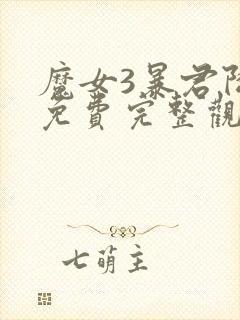 魔女3暴君降
免費完整觀
七萌主